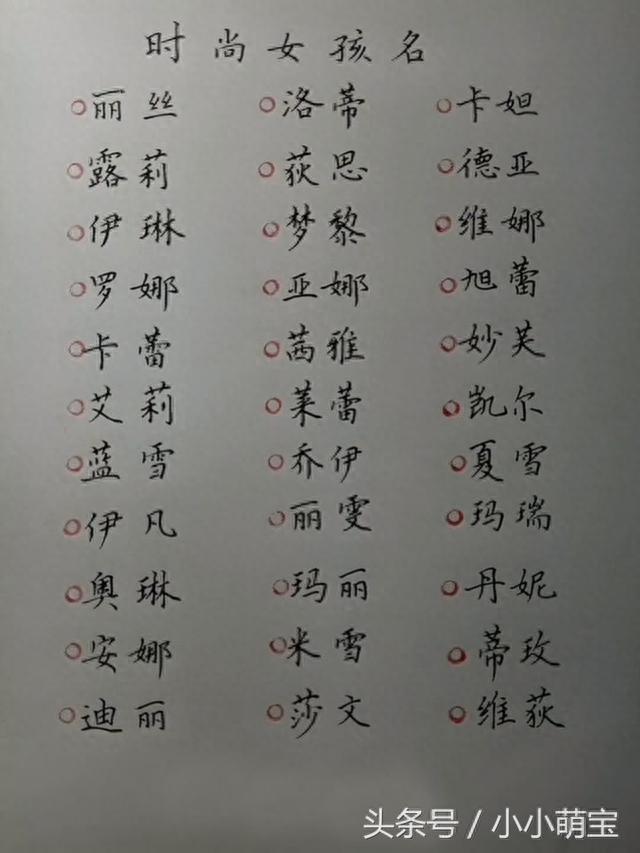 时尚女孩名
丽丝 洛蒂 卡妲
露莉 荻思 德亚
伊琳 梦黎 维娜
罗娜 亚娜 旭蕾
卡蕾 茜雅 妙芙
艾莉 莱蕾 凯尔
蓝雪 乔伊 夏雪
伊凡 丽雯 玛瑞
奥琳 玛丽 丹妮
安娜 米雪 蒂玫
迪丽 莎文 维荻
头条号 / 小小萌宝